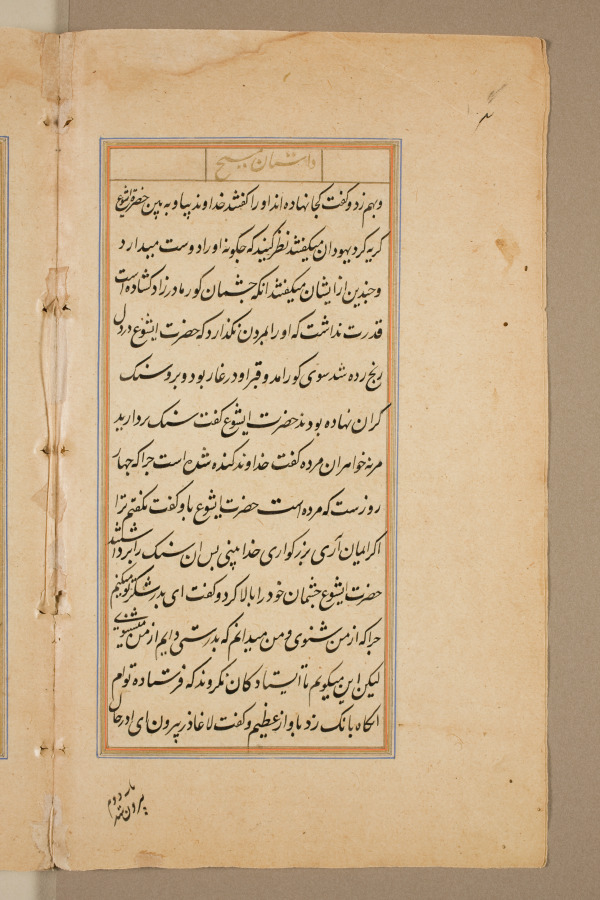 داستان مسیح
وبهم زد و گفت کجا نهاده اند او را گفتند خداوند بیا و به بین حضرت ایشوع
کریه کرد یهودان میکفتند نظر کنید که چکونه اورا دوست میدارد
و چندین از ایشان میکفتند انکه چشمان کور مادرزاد کشاده است
قدرت نداشت که اورا بمردن نکذارد که حضرت ایشوع در دل
رنج زده شد سوی کور امد و قبر او در غار بود و برو سنک
کران نهاده بودند حضرت ایشوع کفت سنک بردارید
مرته خواهر ان مرده کفت خداوند کنده شده است چرا که چهار
روزست که مرده است حضرت ایشوع باو کفت نکفتم ترا
اکر ایمان آری بزرکواری خدا بینی پس ان سنک را برداشتند
حضرت ایشوع چشمان خود را بالا کرد و کفت ای پدر شکر تو میکنم
چرا که از من شنوی و من میدانم که بدرستی دایم از من میشنوی
لیکن این میکویم تا ایستادکان بکروند که فرستاده توام
انکاه بانک زد باواز عظیم و کفت لاغاذر بیرون ای در حال
بیرون شد